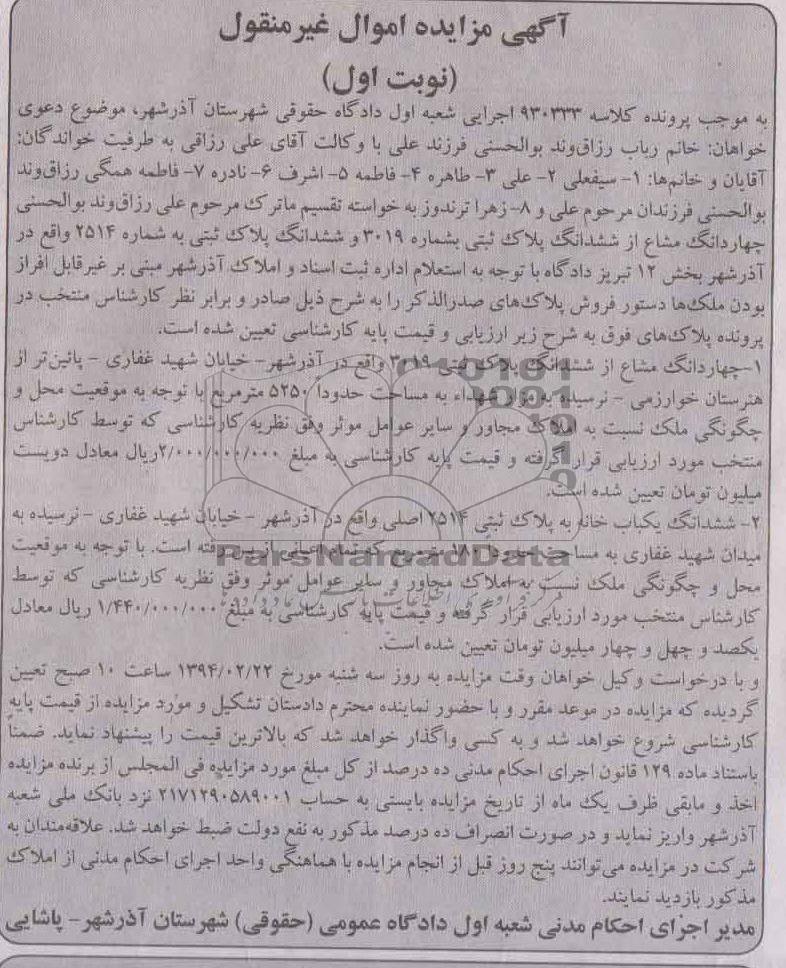 آگهی مزایده اموال غیرمنقول
(نوبت اول)
به موجب پرونده کلاسه ۹۳۰۳۳۳ اجرایی شعبه اول دادگاه حقوقی شهرستان آذرشهر، موضوع دعوی
خواهان: خانم رباب رزاق‌وند بوالحسنی فرزند علی با وکالت آقای علی رزاقی به طرفیت خواندگان:
آقایان و خانم‌ها: ۱- سیفعلی ۲- علی ۳- طاهره ۴- فاطمه ۵- اشرف ۶- نادره ۷- فاطمه همگی رزاق‌وند
بوالحسنی فرزندان مرحوم علی و ۸- زهرا ترندوز به خواسته تقسیم ماترک مرحوم علی رزاق‌وند بوالحسنی
چهاردانگ مشاع از ششدانگ پلاک ثبتی بشماره ۳۰۱۹ و ششدانگ پلاک ثبتی به شماره ۲۵۱۴ واقع در
آذرشهر بخش ۱۲ تبریز دادگاه با توجه به استعلام اداره ثبت اسناد و املاک آذرشهر مبنی بر غیرقابل افراز
بودن ملک‌ها دستور فروش پلاک‌های صدرالذکر را به شرح ذیل صادر و برابر نظر کارشناس منتخب در
پرونده پلاک‌های فوق به شرح زیر ارزیابی و قیمت پایه کارشناسی تعیین شده است.
۱-چهاردانگ مشاع از ششدانگ پلاک ثبتی ۳۰۱۹ واقع در آذرشهر- خیابان شهید غفاری - پائین‌تر از
هنرستان خوارزمی - نرسیده به مزار شهداء به مساحت حدودا ۵۲۵۰ مترمربع با توجه به موقعیت محل و
چگونگی ملک نسبت به املاک مجاور و سایر عوامل موثر وفق نظریه کارشناسی که توسط کارشناس
منتخب مورد ارزیابی قرار گرفته و قیمت پایه کارشناسی به مبلغ ۲/۰۰۰/۰۰۰/۰۰۰ریال معادل دویست
میلیون تومان تعیین شده است.
۲- ششدانگ یکباب خانه به پلاک ثبتی ۲۵۱۴ اصلی واقع در آذرشهر - خیابان شهید غفاری - نرسیده به
میدان شهید غفاری به مساحت حدودا ۱۸۰ مترمربع که تمام اعیانی از بین رفته است. با توجه به موقعیت
محل و چگونگی ملک نسبت به املاک مجاور و سایر عوامل موثر وفق نظریه کارشناسی که توسط
کارشناس منتخب مورد ارزیابی قرار گرفته و قیمت پایه کارشناسی به مبلغ ۱/۴۴۰/۰۰۰/۰۰۰ ریال معادل
یکصد و چهل و چهار میلیون تومان تعیین شده است.
و با درخواست وکیل خواهان وقت مزایده به روز سه شنبه مورخ ۱۳۹۴/۰۲/۲۲ ساعت ۱۰ صبح تعیین
گردیده که مزایده در موعد مقرر و با حضور نماینده محترم دادستان تشکیل و مورد مزایده از قیمت پایه
کارشناسی شروع خواهد شد و به کسی واگذار خواهد شد که بالاترین قیمت را پیشنهاد نماید. ضمناً
باستناد ماده ۱۲۹ قانون اجرای احکام مدنی ده درصد از کل مبلغ مورد مزایده فی المجلس از برنده مزایده
اخذ و مابقی ظرف یک ماه از تاریخ مزایده بایستی به حساب ۲۱۷۱۲۹۰۵۸۹۰۰۱ نزد بانک ملی شعبه
آذرشهر واریز نماید و در صورت انصراف ده درصد مذکور به نفع دولت ضبط خواهد شد. علاقه‌مندان به
شرکت در مزایده می‌توانند پنج روز قبل از انجام مزایده با هماهنگی واحد اجرای احکام مدنی از املاک
مذکور بازدید نمایند.
مدیر اجرای احکام مدنی شعبه اول دادگاه عمومی (حقوقی) شهرستان آذرشهر- پاشایی
ParsNamadData